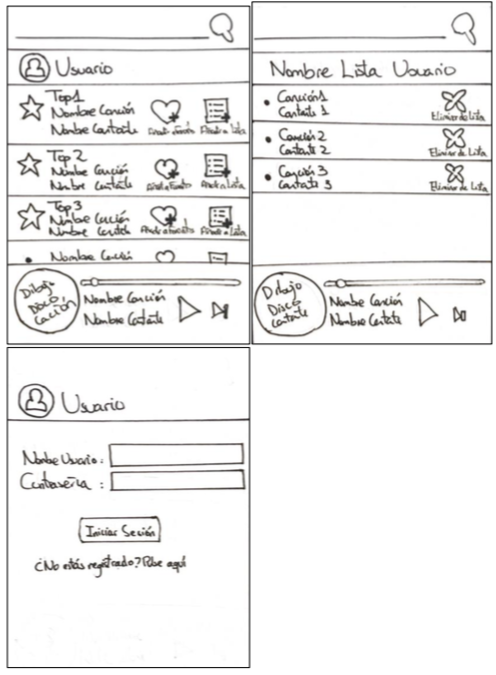 Usuario
Top1
Nombre Canción
Nombre Cantante
Añadir a Favorito
Añadir a lista
Top 2
Nombre Canción
Nombre Cantante
Añadir a Favorito
Añadir a Lista
Top 3
Nombre Canción
Nombre Cantante
Añadir a Favorito
Añadir a Lista
Nombre Canción
Dibujo
Disco
Canción
Nombre Canción
Nombre Cantante
Nombre Lista Usuario
Canción1
Cantante 1
Eliminar de Lista
Canción 2
Cantante 2
Eliminar de Lista
Canción 3
Cantante 3
Eliminar de Lista
Dibujo
Disco
Cantante
Nombre Canción
Nombre Cantante
Usuario
Nombre Usuario:
Contraseña :
Iniciar Sesión
¿No estás registrado? Pulse aquí